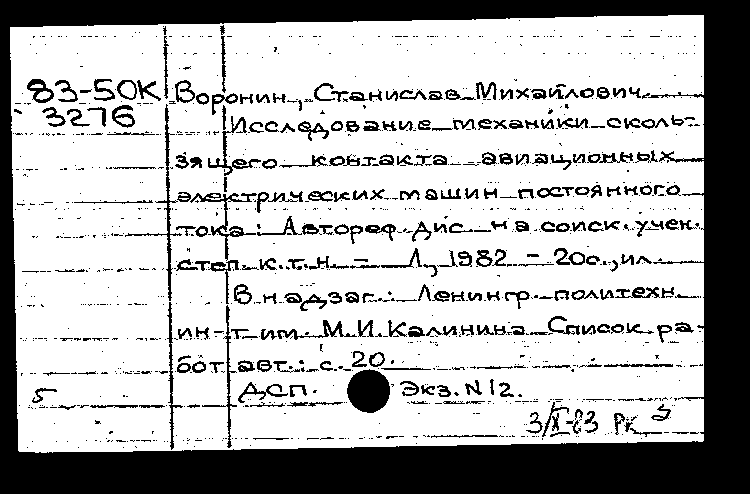 83-50К Воронин, Станислав Михайлович.
3276
Исследование механики сколь-
зящего контакта авиационных
электрических машин постоянного
тока: Автореф. дис. на соиск. учен.
степ. к.т.н. - Л., 1982 - 20с., ил.
В надзаг.: Ленингр. политехн.
ин-т им. М.И. Калинина Список ра-
бот авт.: с. 20.
5 ДСП. Экз. N12.
3/X-83 Рк